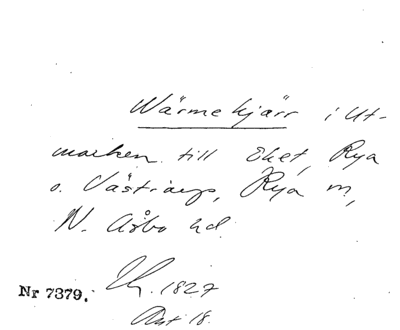 Wärmekjärr i Ut-
marken till Eket, Rya
o. Västraryp, Rya m,
N. Åsbo hd
Nr 7379. 1827
Akt 18.